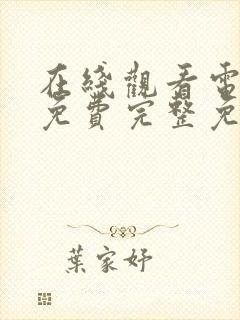 在綫觀看電
免費完整免
葉家妤